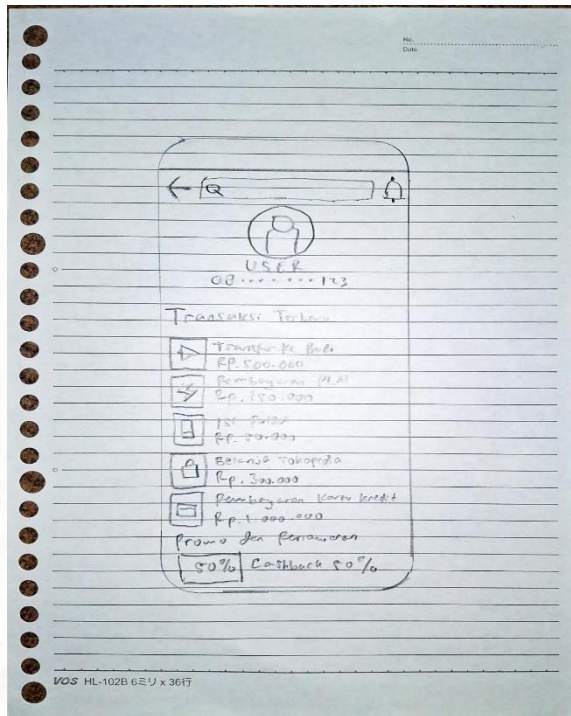 No.
Date
Q
USER
08........123
Transaksi Terbaru
Transfer ke Budi
Rp.500.000
Pembayaran
Rp.250.000
Isi Pulsa
Rp.50.000
Belanja Tokopedia
Rp.300.000
Pembayaran Kartu kredit
Rp.1.000.000
Promo dan Penawaran
50% Cashback 50%
VOS HL-102B 6ミリ x 36行